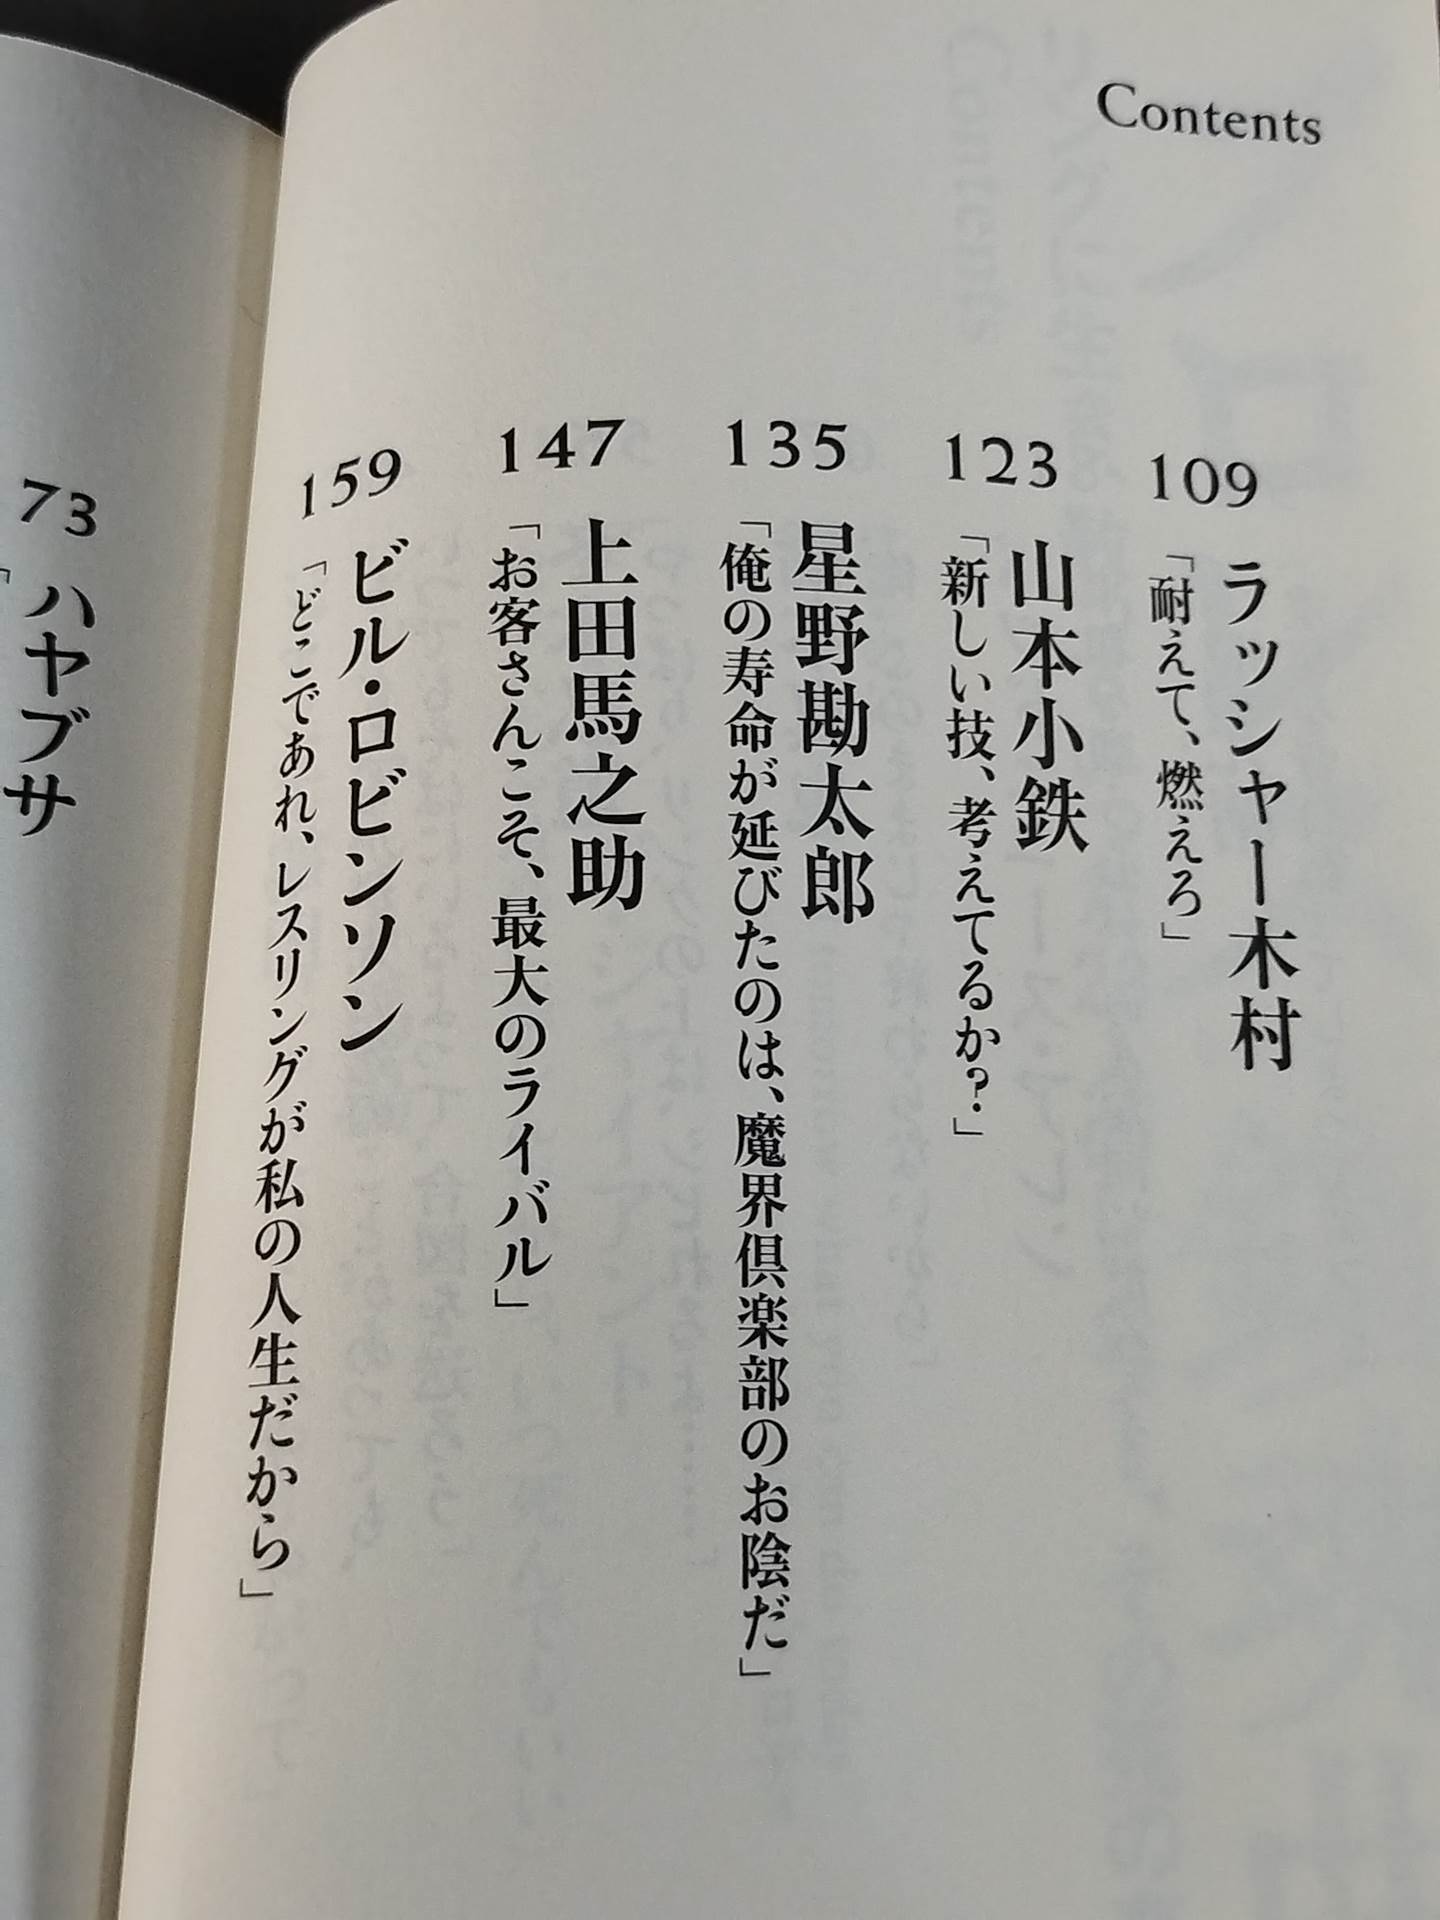 Contents
109
ラッシャー木村
「耐えて、燃えろ」
123
山本小鉄
「新しい技、考えてるか?」
135
星野勘太郎
「俺の寿命が延びたのは、魔界倶楽部のお陰だ」
147
上田馬之助
「お客さんこそ、最大のライバル」
159
ビル・ロビンソン
「どこであれ、レスリングが私の人生だから」
73
ハヤブサ
「